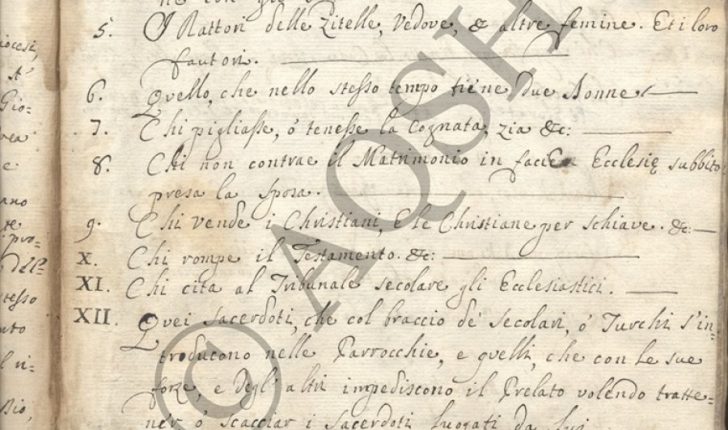 ne con
5. I Rattori delle Zitelle, Vedove, & altre femine. Et i loro
fautori.
6. Quello, che nello stesso tempo tiene due Donne
7. Chi pigliasse, ò tenesse la Cognata, zia &c:
8. Chi non contrae il Matrimonio in facie Ecclesię subbito
presa la sposa.
9. Chi vende i Christiani, e le Christiane per schiave. &c:
X. Chi rompe il Testamento. &c:
XI. Chi cita al Tribunale secolare gli Ecclesiastici.
XII. Quei sacerdoti, che col braccio de' secolari, ò Turchi s'in-
troducono nelle Parrocchie, e quelli, che con le sue
forze, e degl' altri impediscono il Prelato volendo tratte-
ner ò scacciar i sacerdoti luogati da lui
ocesi,
A'
Gio-
vea
e
ano
re
pro-
dell'
stesso
ato
il ri-
Bio,
© AQSH